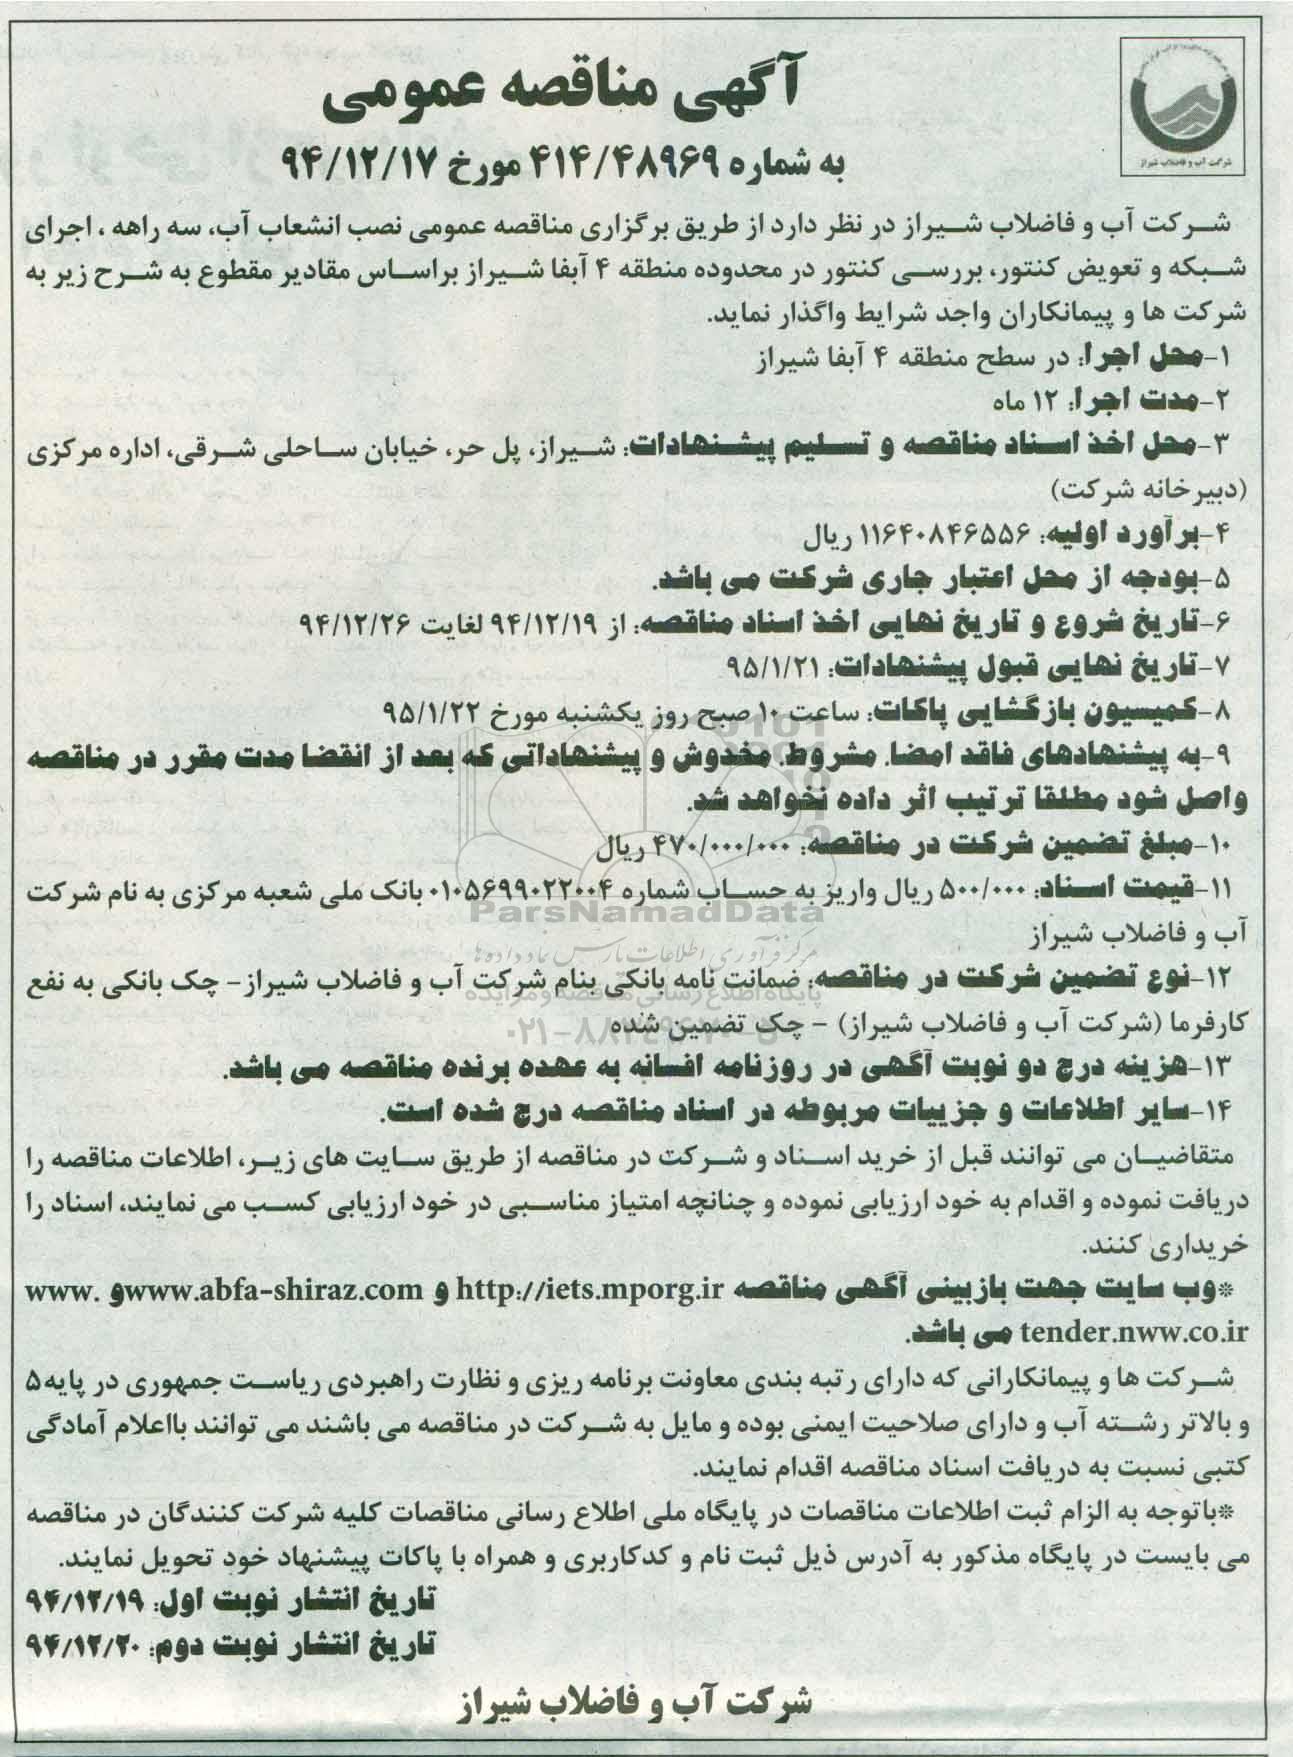 شرکت آب و فاضلاب شیراز
آگهی مناقصه عمومی
به شماره ۴۱۴/۴۸۹۶۹ مورخ ۹۴/۱۲/۱۷
شرکت آب و فاضلاب شیراز در نظر دارد از طریق برگزاری مناقصه عمومی نصب انشعاب آب، سه راهه ، اجرای
شبکه و تعویض کنتور، بررسی کنتور در محدوده منطقه ۴ آبفا شیراز براساس مقادیر مقطوع به شرح زیر به
شرکت ها و پیمانکاران واجد شرایط واگذار نماید.
۱-محل اجرا: در سطح منطقه ۴ آبفا شیراز
۲-مدت اجرا: ۱۲ ماه
۳-محل اخذ اسناد مناقصه و تسلیم پیشنهادات: شیراز، پل حر، خیابان ساحلی شرقی، اداره مرکزی
(دبیرخانه شرکت)
۴-برآورد اولیه: ۱۱۶۴۰۸۴۶۵۵۶ ریال
۵-بودجه از محل اعتبار جاری شرکت می باشد.
۶-تاریخ شروع و تاریخ نهایی اخذ اسناد مناقصه: از ۹۴/۱۲/۱۹ لغایت ۹۴/۱۲/۲۶
۷-تاریخ نهایی قبول پیشنهادات: ۹۵/۱/۲۱
۸-کمیسیون بازگشایی پاکات: ساعت ۱۰ صبح روز یکشنبه مورخ ۹۵/۱/۲۲
۹-به پیشنهادهای فاقد امضا، مشروط، مخدوش و پیشنهاداتی که بعد از انقضا مدت مقرر در مناقصه
واصل شود مطلقا ترتیب اثر داده نخواهد شد.
۱۰-مبلغ تضمین شرکت در مناقصه: ۴۷۰/۰۰۰/۰۰۰ ریال
۱۱-قیمت اسناد: ۵۰۰/۰۰۰ ریال واریز به حساب شماره ۰۱۰۵۶۹۹۰۲۲۰۰۴ بانک ملی شعبه مرکزی به نام شرکت
آب و فاضلاب شیراز
ParsNamadData
مرکز فرآوری اطلاعات پارس نماد داده ها
۱۲-نوع تضمین شرکت در مناقصه: ضمانت نامه بانکی بنام شرکت آب و فاضلاب شیراز- چک بانکی به نفع
پایگاه اطلاع رسانی مناقصه و مزایده
کارفرما (شرکت آب و فاضلاب شیراز) - چک تضمین شده
۱۳-هزینه درج دو نوبت آگهی در روزنامه افسانه به عهده برنده مناقصه می باشد.
۱۴-سایر اطلاعات و جزییات مربوطه در اسناد مناقصه درج شده است.
متقاضیان می توانند قبل از خرید اسناد و شرکت در مناقصه از طریق سایت های زیر، اطلاعات مناقصه را
دریافت نموده و اقدام به خود ارزیابی نموده و چنانچه امتیاز مناسبی در خود ارزیابی کسب می نمایند، اسناد را
خریداری کنند.
*وب سایت جهت بازبینی آگهی مناقصه http://iets.mporg.ir و www.abfa-shiraz.com و www.
tender.nww.co.ir می باشد.
شرکت ها و پیمانکارانی که دارای رتبه بندی معاونت برنامه ریزی و نظارت راهبردی ریاست جمهوری در پایه۵
و بالاتر رشته آب و دارای صلاحیت ایمنی بوده و مایل به شرکت در مناقصه می باشند می توانند بااعلام آمادگی
کتبی نسبت به دریافت اسناد مناقصه اقدام نمایند.
*باتوجه به الزام ثبت اطلاعات مناقصات در پایگاه ملی اطلاع رسانی مناقصات کلیه شرکت کنندگان در مناقصه
می بایست در پایگاه مذکور به آدرس ذیل ثبت نام و کدکاربری و همراه با پاکات پیشنهاد خود تحویل نمایند.
تاریخ انتشار نوبت اول: ۹۴/۱۲/۱۹
تاریخ انتشار نوبت دوم: ۹۴/۱۲/۲۰
شرکت آب و فاضلاب شیراز